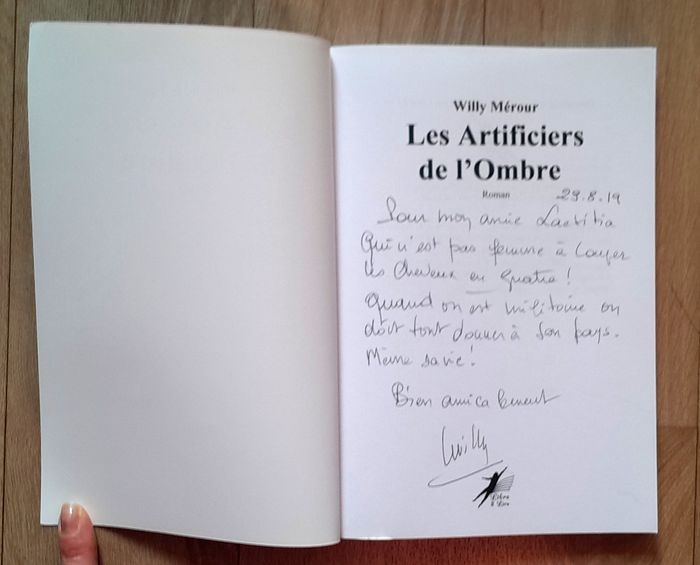 Willy Mérour
Les Artificiers
de l'Ombre
Roman
29.8.19
Pour mon amie Laetitia
Qui n'est pas femme à couper
les cheveux en quatre !
Quand on est militaire on
doit tout donner à son pays.
Même sa vie !
Bien amicalement
Willy